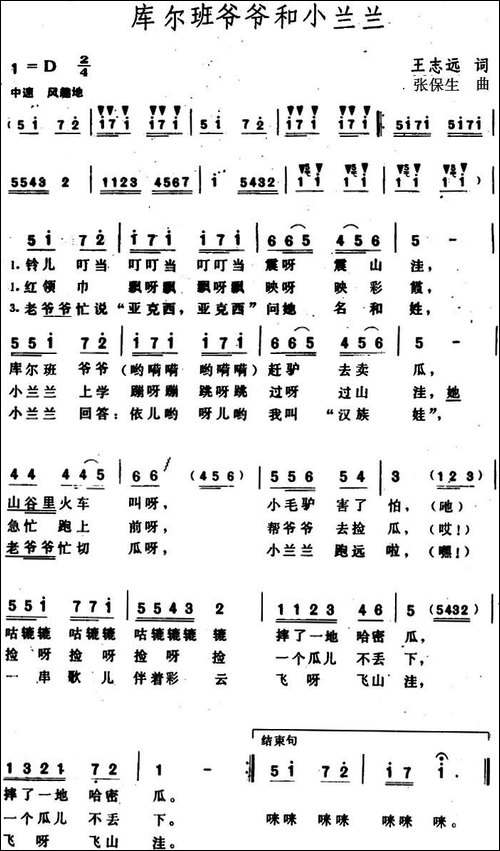 库尔班爷爷和小兰兰
1=D 2/4
王志远 词
中速 风趣地
张保生 曲
(51̇ 72̇ | 1̇71̇ 1̇71̇ | 1̇71̇ 1̇71̇ :| 51̇71̇ 51̇71̇ |
5543 2 | 1123 4567 | 1̇ 5432 | 1̇1̇ 1̇1̇ )|
51̇ 72̇ | 1̇71̇ 1̇71̇ | 665 456 | 5 - |
1.铃儿 叮当 叮叮当 叮叮当 震呀 震山 洼,
1.红领 巾 飘呀飘 飘呀飘 映呀 映彩 霞,
3.老爷爷忙说“亚克西,亚克西”问她 名和 姓,
551̇ 72̇ | 1̇71̇ 1̇71̇ | 665 456 | 5 - |
库尔班 爷爷 (哟嗬嗬 哟嗬嗬) 赶驴 去卖 瓜,
小兰兰 上学 蹦呀蹦 跳呀跳 过呀 过山 洼,她
小兰兰 回答:依儿哟 呀儿哟 我叫 “汉族 娃”,
44 445 | 66 (456) | 556 54 | 3 (123) |
山谷里火车 叫呀, 小毛驴 害了 怕,(吔)
急忙 跑上 前呀, 帮爷爷 去捡 瓜,(哎!)
老爷爷忙切 瓜呀, 小兰兰 跑远 啦,(嘿!)
551̇ 771̇ | 5543 2 | 1123 46 | 5 (5432) |
咕辘辘 咕辘辘 咕辘辘辘 辘 摔了一地 哈密 瓜,
捡呀 捡呀 捡呀 捡 一个瓜儿 不丢 下,
一串 歌儿 伴着彩 云 飞呀 飞山 洼,
结束句
1321 72 | 1 - :| 51̇ 72̇ | 1̇7 1̇ |
摔了一地 哈密 瓜。
一个瓜儿 不丢 下。 咪咪 咪咪 咪咪 咪。
飞呀 飞山 洼。